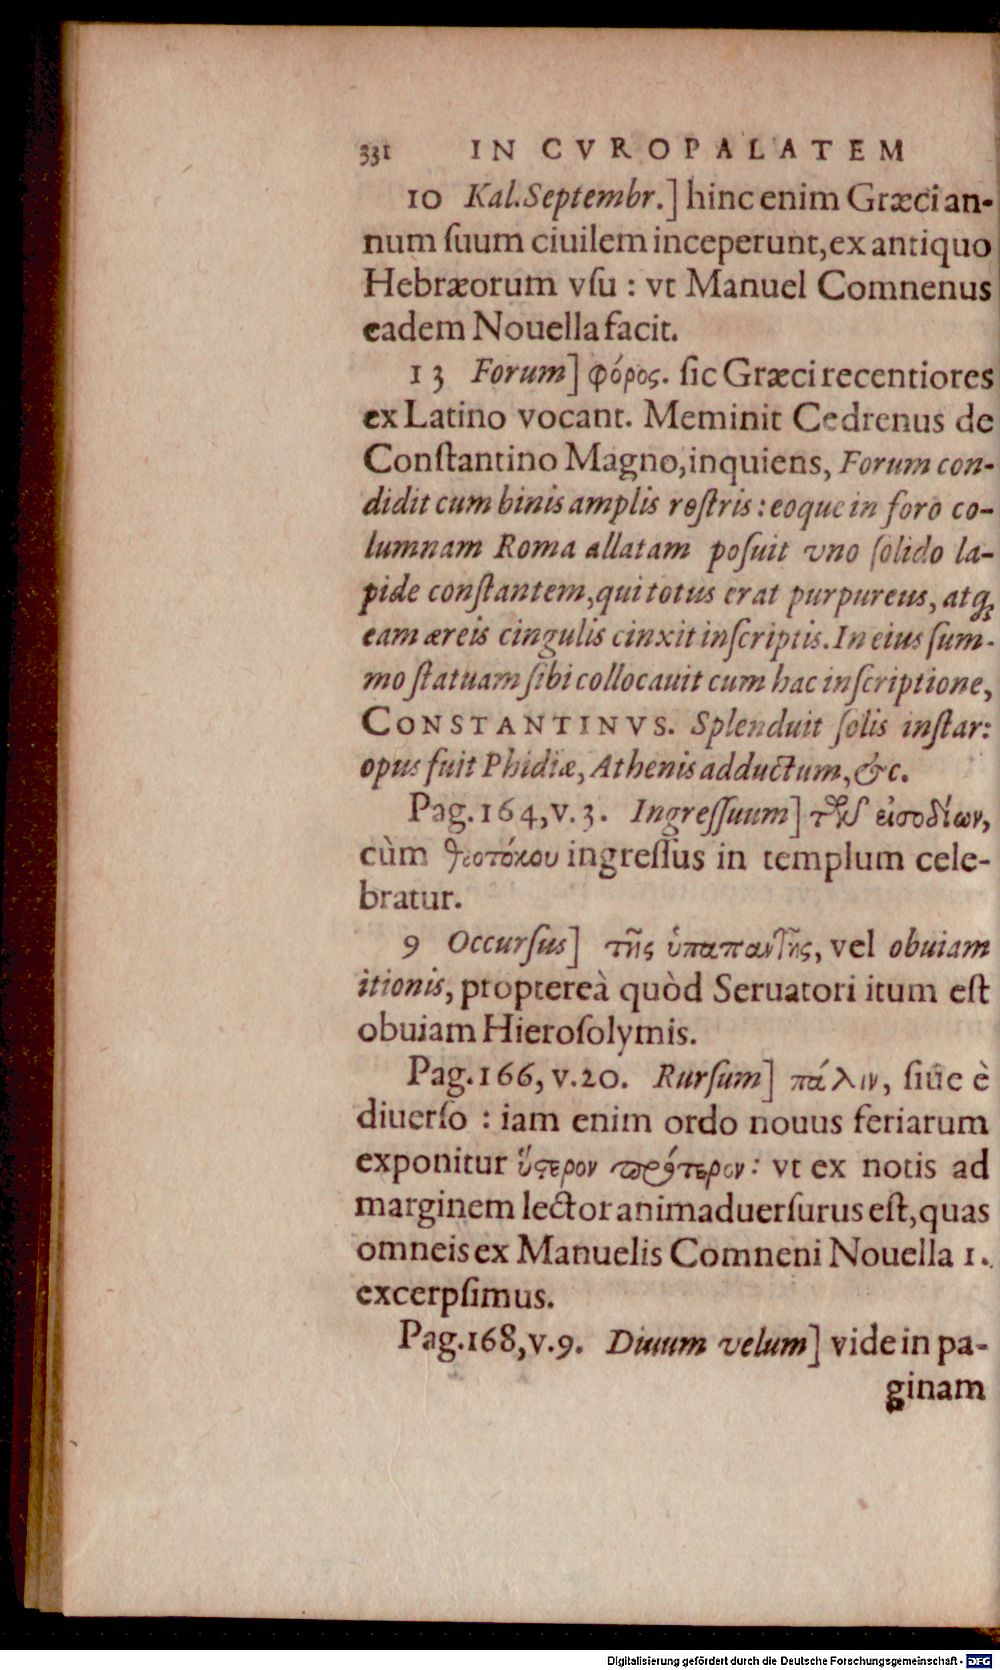 331 IN CVROPALATEM
10 Kal. Septembr.] hinc enim Græci an-
num ſuum ciuilem inceperunt, ex antiquo
Hebræorum vſu : vt Manuel Comnenus
eadem Nouella facit.
13 Forum] φόρος. ſic Græci recentiores
ex Latino vocant. Meminit Cedrenus de
Conſtantino Magno, inquiens, Forum con-
didit cum binis amplis roſtris : eoque in foro co-
lumnam Roma allatam poſuit vno ſolido la-
pide conſtantem, qui totus erat purpureus, atq;
eam æreis cingulis cinxit inſcriptis. In eius ſum-
mo ſtatuam ſibi collocauit cum hac inſcriptione,
CONSTANTINVS. Splenduit ſolis inſtar:
opus fuit Phidiæ, Athenis adductum, &c.
Pag. 164, v. 3. Ingreſſuum] τῶν εἰσοδίων,
cùm θεοτόκου ingreſſus in templum cele-
bratur.
9 Occurſus] τῆς ὑπαπαντῆς, vel obuiam
itionis, proptereà quòd Seruatori itum eſt
obuiam Hieroſolymis.
Pag. 166, v. 20. Rurſum] πάλιν, ſiue è
diuerſo : iam enim ordo nouus feriarum
exponitur ὕστερον πρότερον : vt ex notis ad
marginem lector animaduerſurus eſt, quas
omneis ex Manuelis Comneni Nouella 1.
excerpſimus.
Pag. 168, v. 9. Diuum velum] vide in pa-
ginam
Digitalisierung gefördert durch die Deutsche Forschungsgemeinschaft - DFG